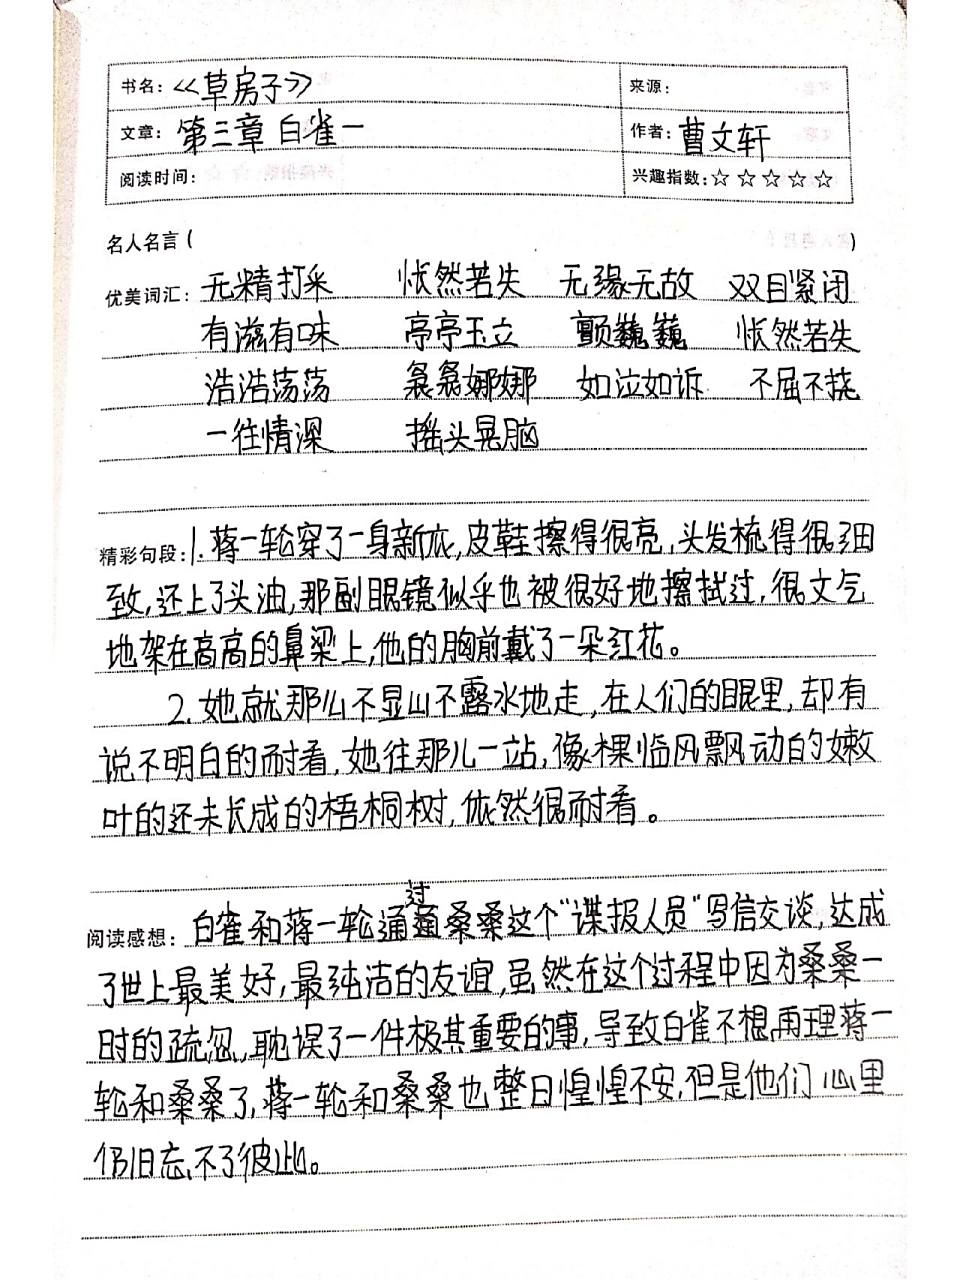 书名：《草房子》 来源：
文章：第三章 白雀一 作者：曹文轩
阅读时间： 兴趣指数：☆☆☆☆☆
名人名言（ ）
优美词汇：无精打采 怅然若失 无缘无故 双目紧闭
有滋有味 亭亭玉立 颤巍巍 怅然若失
浩浩荡荡 袅袅娜娜 如泣如诉 不屈不挠
一往情深 摇头晃脑
精彩句段：1.蒋一轮穿了一身新衣,皮鞋擦得很亮,头发梳得很细
致,还上了头油,那副眼镜似乎也被很好地擦拭过,很文气
地架在高高的鼻梁上,他的胸前戴了一朵红花。
2.她就那么不显山不露水地走,在人们的眼里,却有
说不明白的耐看,她往那儿一站,像棵临风飘动的嫩
叶的还未长成的梧桐树,依然很耐看。
过
阅读感想：白雀和蒋一轮通通桑桑这个“谍报人员”写信交谈,达成
了世上最美好,最纯洁的友谊,虽然在这个过程中因为桑桑一
时的疏忽,耽误了一件极其重要的事,导致白雀不想再理蒋一
轮和桑桑了,蒋一轮和桑桑也整日惶惶不安,但是他们心里
仍旧忘不了彼此。